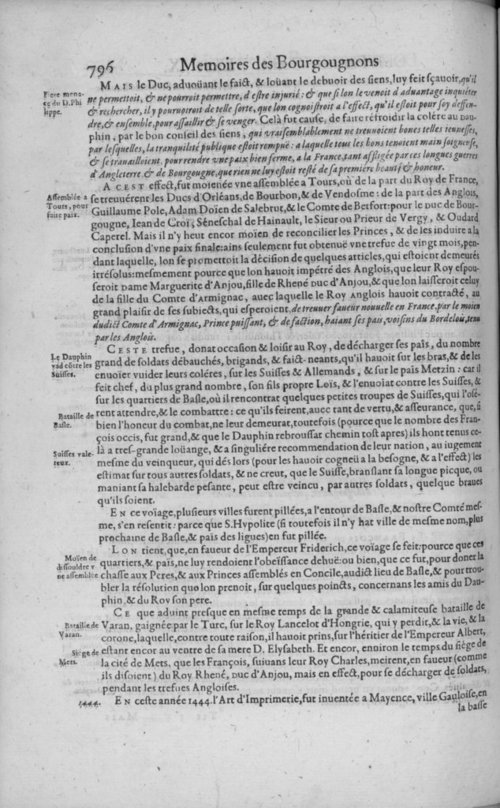 796 Memoires des Bourgougnons
MAIS le Duc, aduoüant le faict, & loüant le debuoir des siens, luy feit sçauoir, qu'il
Fiere mena-
ce du D. Phi
lippe.
ne permettoit, & ne pourroit permettre, d'estre iniurié: & que s'il on le venoit d'aduantage inquiéter
& rechercher, il y pouruoiroit de telle sorte, que lon cognoistroit a l'effect, qu'il estoit pour soy deffen-
dre, & ensemble, pour assaillir & se venger. Celà fut cause, de faire réfroidir la colére au dau-
phin, par le bon conseil des siens, qui vraisemblablement ne treuuoient bones telles
par lesquelles, la tranquilité publique estoit rompuë: a laquelle tous les bons tenoient main soigneuse,
& se trauailloient, pour rendre vne paix bien ferme, a la France, tant affligée par ces longues guerres
d'Angleterre & de Bourgougne, que rien ne luy estoit resté de sa premiére beauté & honeur.
A CEST effect, fut moienée vne assemblée a Tours, où de la part du Roy de France,
Assemblée a
Tours, pour
faire paix.
se treuuérent les Ducs d'Orléans, de Bourbon, & de Vendosme: de la part des Anglois,
Guillaume Pole, Adam Doïen de Salebrut, & le Comte de Betfort: pour le Duc de Bour-
gougne, Iean de Croï, Séneschal de Hainault, le Sieur ou Prieur de Vergy, & Oudard
Caperel. Mais il n'y heut encor moïen de reconcilier les Princes, & de les induire a la
conclusion d'vne paix finale: ains seulement fut obtenuë vne trefue de vingt mois, pen-
dant laquelle, lon se promettoit la décision de quelques articles, qui estoient demeurés
irrésolus: mesmement pource que lon hauoit impétré des Anglois, que leur Roy espou-
seroit Dame Marguerite d'Anjou, fille de Rhené Duc d'Anjou, & que lon laisseroit celuy
de la fille du Comte d'Armignac, auec laquelle le Roy Anglois hauoit contracté, au
grand plaisir de ses subiects, qui esperoient, de treuuer faueur nouuelle en France, par le moïen
dudict Comte d'Armignac, Prince puissant, & de faction, haiant ses païs, voisins du Bordelois, tenu
par les Anglois.
CESTE trefue, donat occasion & loisir au Roy, de décharger ses païs, du nombre
Le Dauphin
vad côtre les
Suisses.
grand de soldats débauchés, brigands, & faict-neants, qu'il hauoit sur les bras, & de les
enuoïer vuider leurs coléres, sur les Suisses & Allemands, & sur le païs Metzin: car il
feit chef, du plus grand nombre, son fils propre Loïs, & l'enuoïat contre les Suisses, &
sur les quartiers de Basle, où il rencontrat quelques petites troupes de Suisses, qui l'osé-
Bataille de
Basle.
rent attendre, & le combattre: ce qu'ils feirent, auec tant de vertu, & asseurance, que, si
bien l'honeur du combat, ne leur demeurat, toutefois (pource que le nombre des Fran-
çois occis, fut grand, & que le Dauphin rebroussat chemin tost apres) ils hont tenus ce-
Suisses vale-
reux.
là a tres-grande loüange, & a singuliére recommendation de leur nation, au iugement
mesme du veinqueur, qui dés lors (pour les hauoir cogneü a la besogne, & a l'effect) les
estimat sur tous autres soldats, & ne creut, que le Suisse, branslant sa longue picque, ou
maniant sa halebarde pesante, peut estre veincu, par autres soldats, quelque braues
qu'ils soient.
EN ce voïage, plusieurs villes furent pillées, a l'entour de Basle, & nostre Comté mes-
me, s'en resentit: parce que S. Hypolite (si toutefois il n'y hat ville de mesme nom, plus
prochaine de Basle, & païs des ligues) en fut pillée.
LON tient, que, en faueur de l'Empereur Friderich, ce voïage se feit: pource que ces
Moïen de
dissouldre v
ne assemblée
quartiers, & païs, ne luy rendoient l'obeïssance dehuë: ou bien, que ce fut, pour doner la
chasse aux Peres, & aux Princes assemblés en Concile, audict lieu de Basle, & pour trou-
bler la résolution que lon prenoit, sur quelques poincts, concernans les amis du Dau-
phin, & du Roy son pere.
CE que aduint presque en mesme temps de la grande & calamiteuse bataille de
Bataille de
Varan.
Varan, gaignée par le Turc, sur le Roy Lancelot d'Hongrie, qui y perdit, & la vie, & la
corone, laquelle, contre toute raison, il hauoit prins, sur l'héritier de l'Empereur Albert,
Siége de
Mets.
estant encor au ventre de sa mere D. Elysabeth. Et encor, enuiron le temps du siége de
la cité de Mets, que les François, suiuans leur Roy Charles, meirent, en faueur (comme
ils disoient) du Roy Rhené, Duc d'Anjou, mais en effect, pour se décharger de soldats,
pendant les trefues Angloises.
1444. EN ceste année 1444. l'Art d'Imprimerie, fut inuentée a Mayence, ville Gauloise, en
la basse